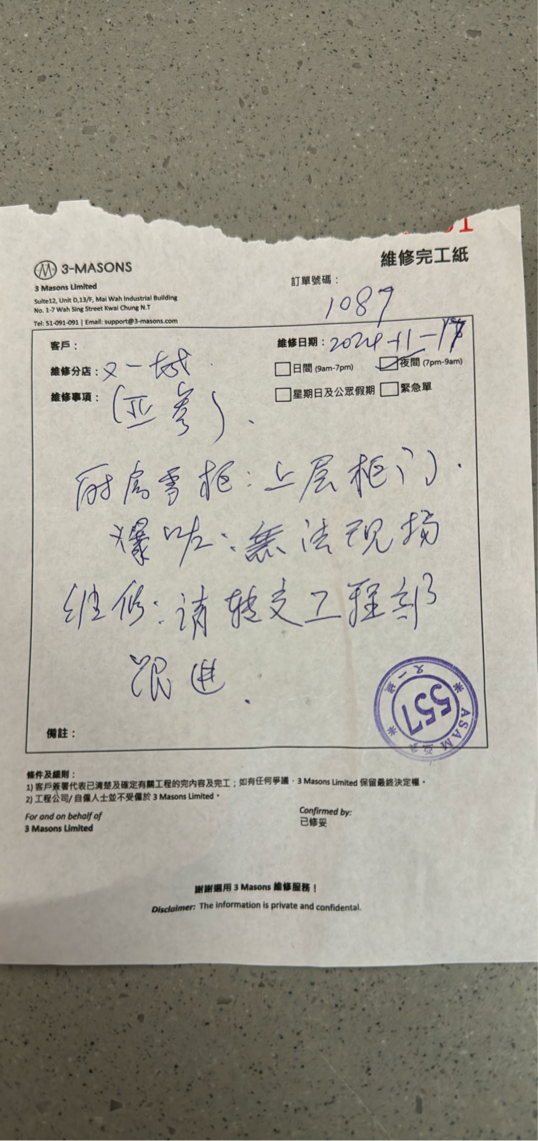 3-MASONS
維修完工紙
3 Masons Limited
Suite12, Unit D,13/F, Mai Wah Industrial Building
No. 1-7 Wah Sing Street Kwai Chung N.T
Tel: 51-091-091 | Email: support@3-masons.com
訂單號碼：
1087
客戶：
維修日期：2024-11-17
維修分店：又一城
日間 (9am-7pm) 夜間 (7pm-9am)
維修事項：(亚参).
星期日及公眾假期 緊急單
厨房雪柜：上层柜门.
爆呔：無法现场
维修：请转交工程部
跟進.
557
ASAM 亞參
又一城
備註：
條件及細則：
1) 客戶簽署代表已清楚及確定有關工程的完內容及完工；如有任何爭議，3 Masons Limited 保留最終決定權。
2) 工程公司/ 自僱人士並不受僱於 3 Masons Limited。
For and on behalf of
3 Masons Limited
Confirmed by:
已修妥
謝謝選用 3 Masons 維修服務！
Disclaimer: The information is private and confidental.